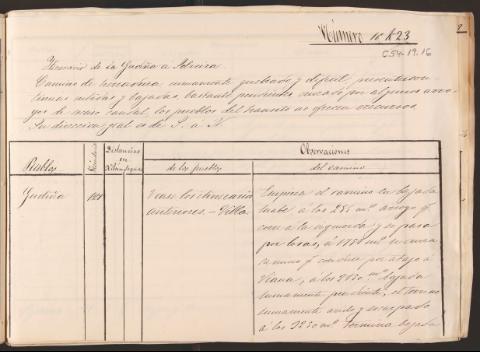 Número 16 A-23
C.54-19.16
Itinerario de La Gudiña a Poleira
Camino de herradura sumamente quebrado y dificil, presentando
largas subidas y bajadas bastante pendientes cruzado por algunos arro-
yos de escaso caudal, los pueblos del transito no ofrecen recursos.
Su direccion gral es de S. á N.
Pueblos
Vecinos
Distancias
en
Kilómetros
Observaciones
de los pueblos
del camino
Gudiña
Vease los itinerarios
anteriores = Villa
Empieza el camino en bajada
á los 255 m.s arroyo q.e
corre á la izquierda y se pasa
por losas, á 1750 m.s se cruza
camino q.e conduce por abajo á
Viana, á los 2050 m.s bajada
sumamente pendiente, el terreno
sumamente arido y escarpado
á los 3250 m.s termina bajada